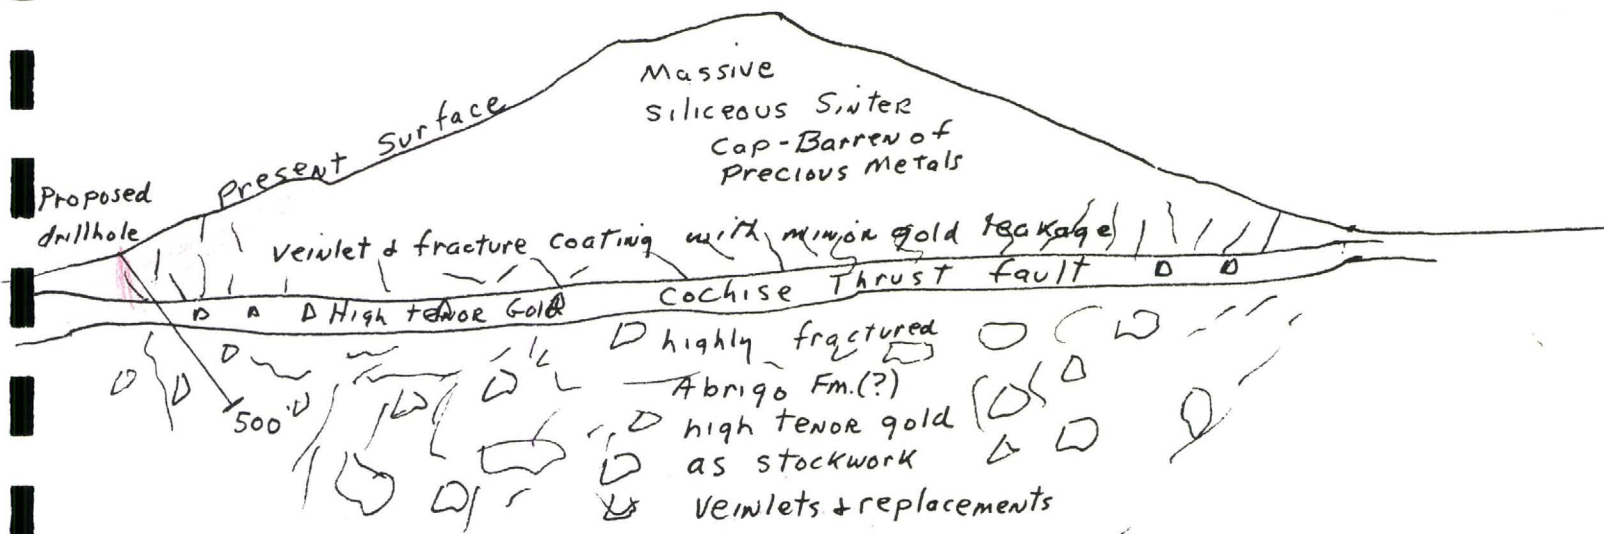 Massive
Siliceous Sinter
Cap-Barren of
Precious Metals
Present Surface
Proposed
drillhole
Veinlet & fracture coating with minor gold leakage
Cochise Thrust fault
High tenor Gold
highly fractured
Abrigo Fm.(?)
high tenor gold
as stockwork
veinlets & replacements
500'